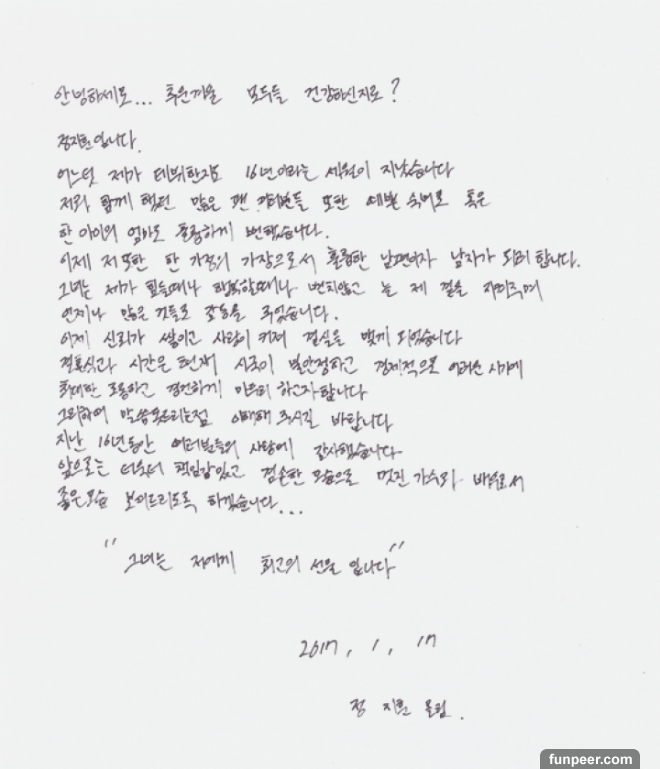 안녕하세요... 추운겨울 모두들 건강하신지요?
정지훈입니다.
어느덧 제가 데뷔한지도 16년이라는 세월이 지났습니다
저와 함께 했던 많은 팬 여러분들 또한 예쁜 숙녀로 혹은
한 아이의 엄마로 훌륭하게 변했습니다.
이제 저 또한 한 가정의 가장으로서 훌륭한 남편이자 남자가 되려 합니다.
그녀는 제가 힘들때나 행복할때나 변치않고 늘 제 곁을 지켜주며
언제나 많은 것들로 감동을 주었습니다.
이제 신뢰가 쌓이고 사랑이 커져 결실을 맺게 되었습니다
결혼식과 시간은 현재 시국이 불안정하고 경제적으로 어려운 시기에
최대한 조용하고 경건하게 마무리 하고자합니다
그리하여 말씀못드리는점 이해해 주시길 바랍니다
지난 16년동안 여러분들의 사랑에 감사했습니다
앞으로는 더욱더 책임감있고 겸손한 모습으로 멋진 가수와 배우로서
좋은모습 보여드리도록 하겠습니다...
"그녀는 저에게 최고의 선물 입니다"
2017, 1, 17
정 지훈 올림.
funpeer.com